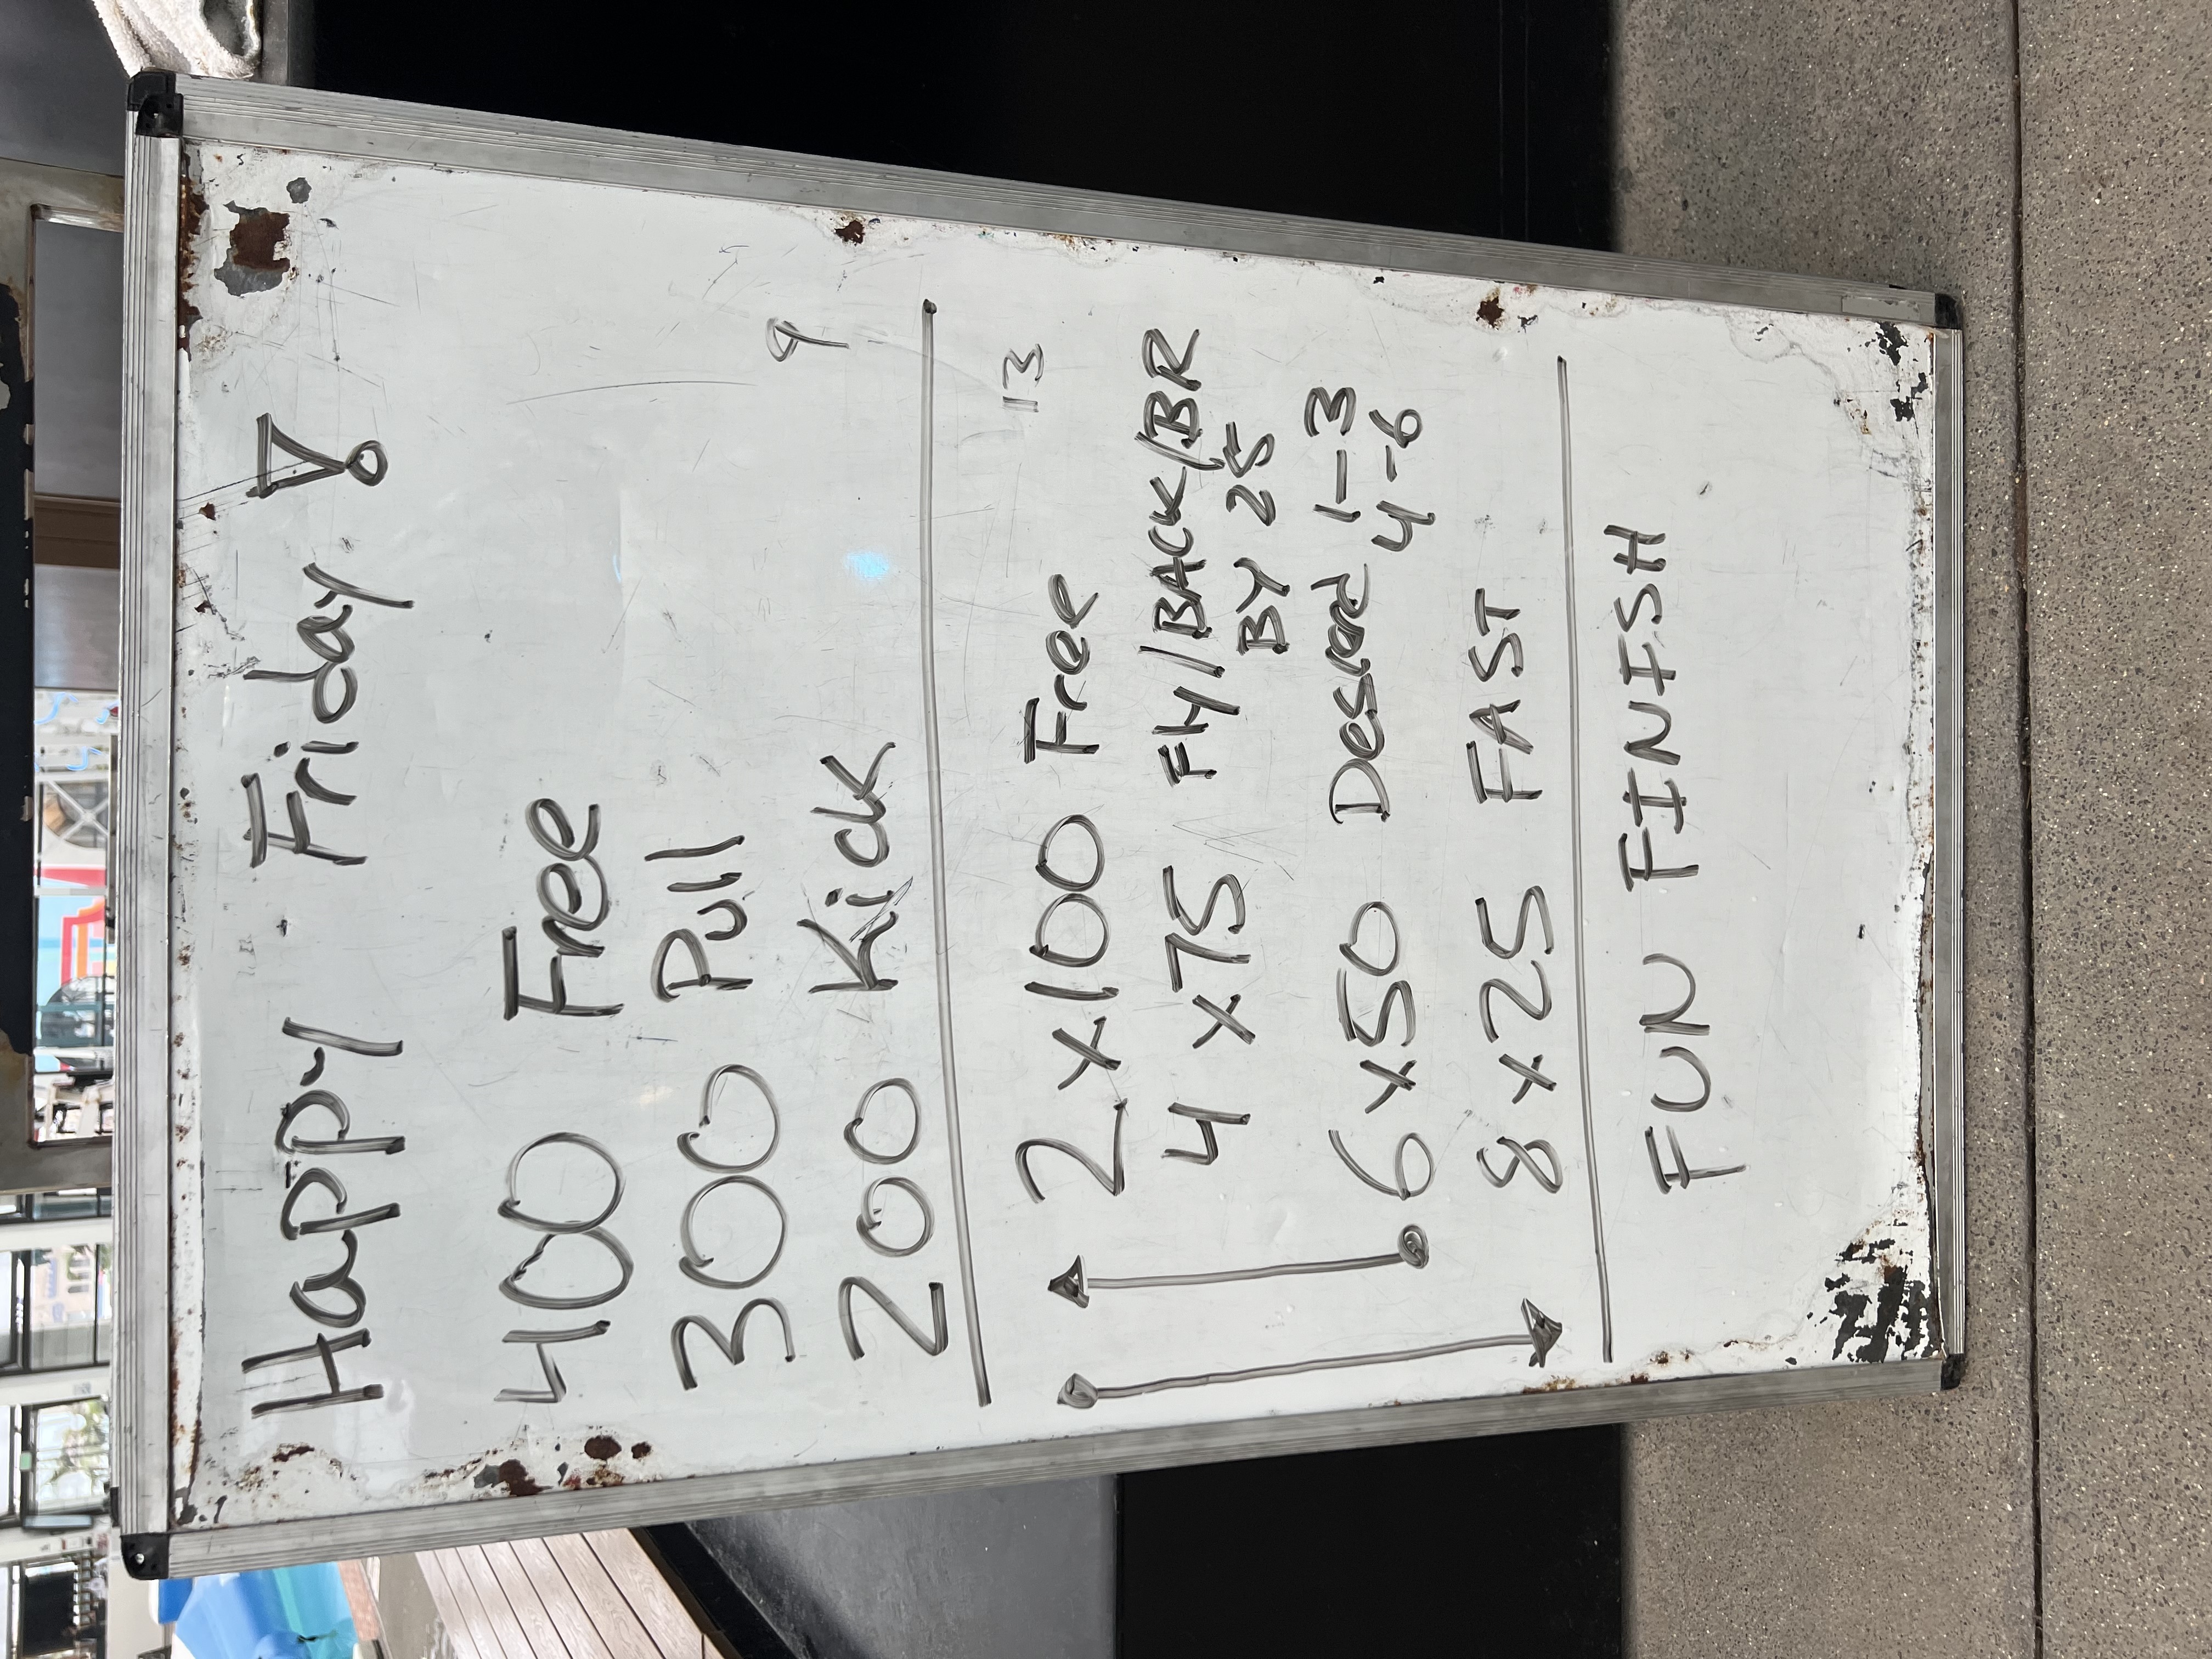 Happy Friday!
400 Free
300 Pull
200 Kick
9
13
2 x 100 Free
4 x 75 FLY/BACK/BR
BY 25
6 x 50 Descend 1-3
4-6
8 x 25 FAST
FUN FINISH